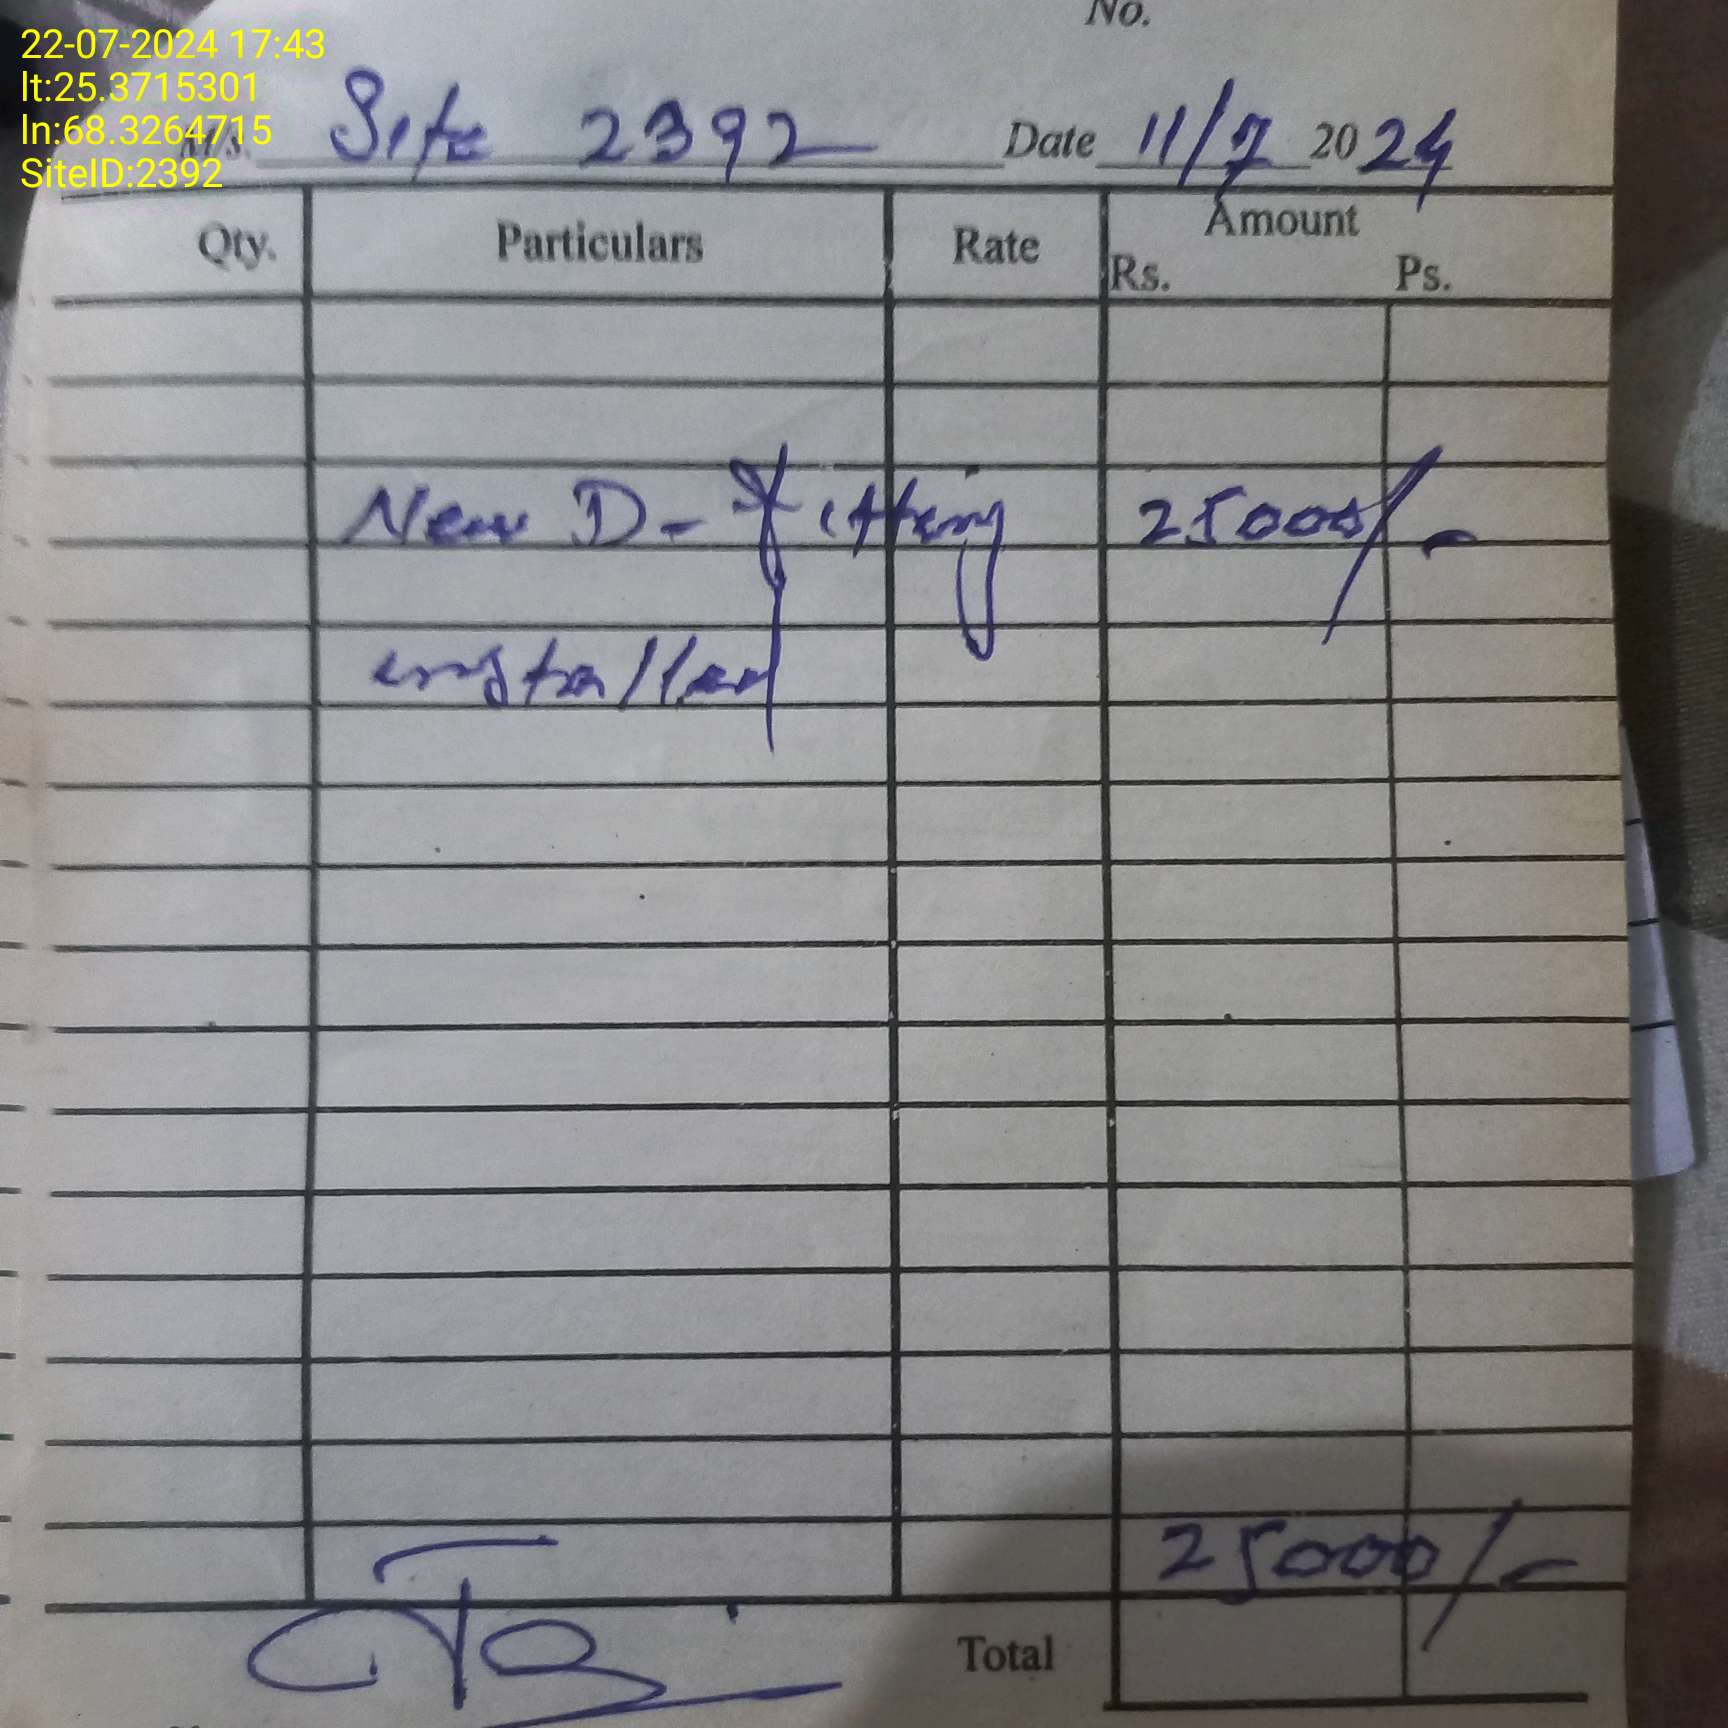 No.
22-07-2024 17:43
lt:25.3715301
ln:68.3264715
SiteID:2392
M/s. Site 2392 Date 11/7 2024
Qty. Particulars Rate Amount
Rs. Ps.
New D-fitting 25000/-
installed
25000/-
Total